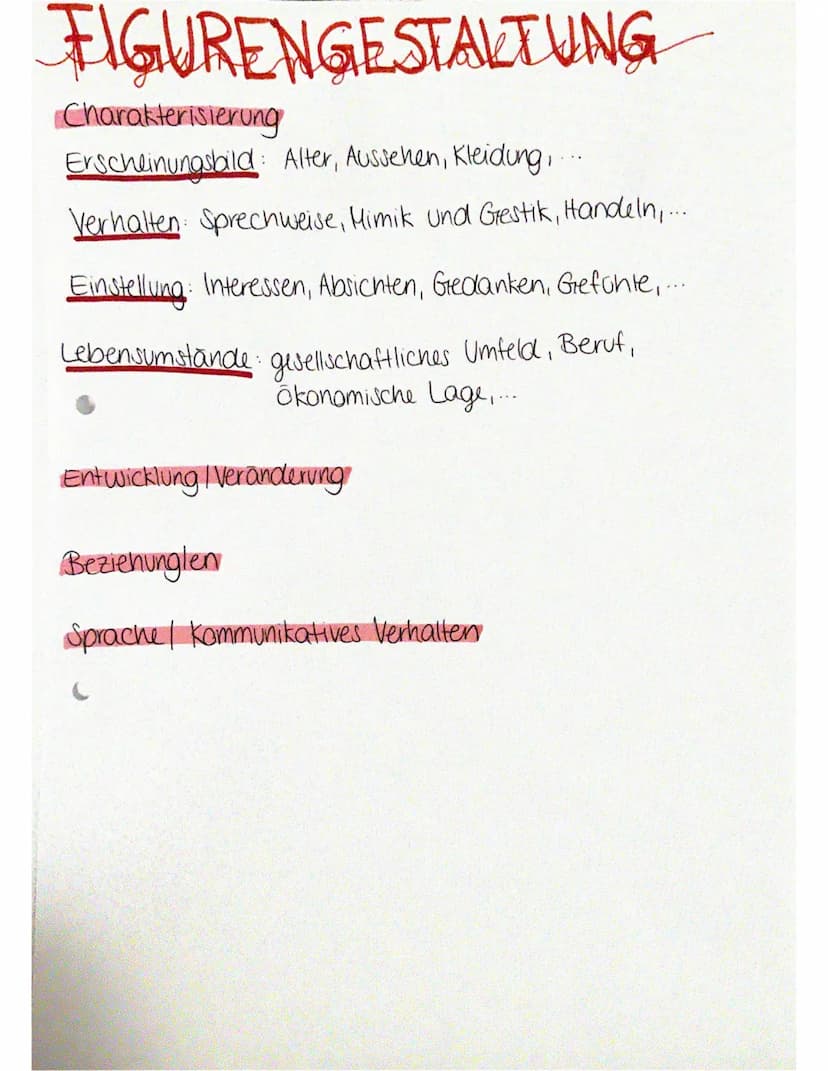 FIGURENGESTALTUNG
Charakterisierung
Erscheinungsbild: Alter, Aussehen, Kleidung, ...
Verhalten: Sprechweise, Mimik und Gestik, Handeln, ...
Einstellung: Interessen, Absichten, Gedanken, Gefühle, ...
Lebensumstände: gesellschaftliches Umfeld, Beruf,
Ökonomische Lage, ...
Entwicklung/Veränderung
Beziehung/en
Sprache/ Kommunikatives Verhalten